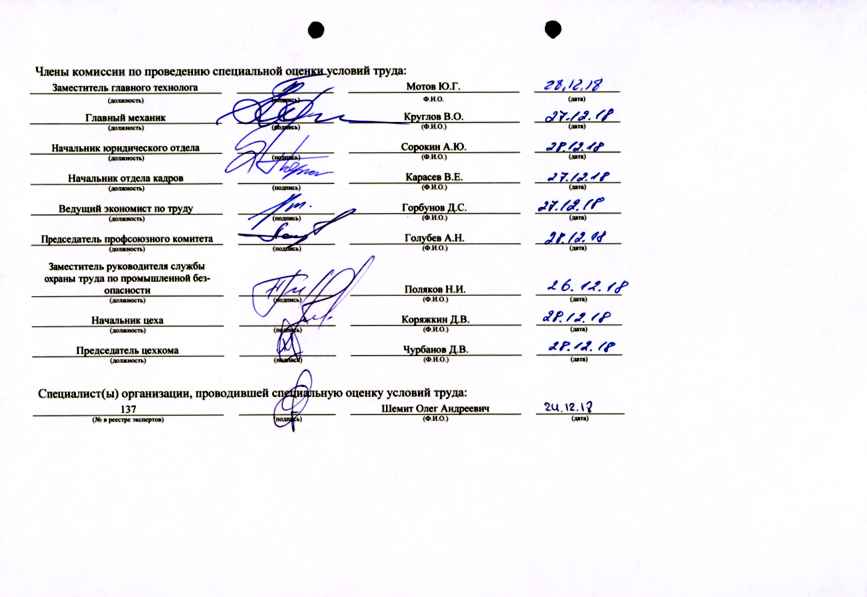 Члены комиссии по проведению специальной оценки условий труда:
Заместитель главного технолога Мотов Ю.Г. 28.12.18
(должность) (подпись) Ф.И.О. (дата)
Главный механик Круглов В.О. 27.12.18
(должность) (подпись) (Ф.И.О.) (дата)
Начальник юридического отдела Сорокин А.Ю. 28.12.18
(должность) (подпись) (Ф.И.О.) (дата)
Начальник отдела кадров Карасев В.Е. 27.12.18
(должность) (подпись) (Ф.И.О.) (дата)
Ведущий экономист по труду Горбунов Д.С. 27.12.18
(должность) (подпись) (Ф.И.О.) (дата)
Председатель профсоюзного комитета Голубев А.Н. 28.12.18
(должность) (подпись) (Ф.И.О.) (дата)
Заместитель руководителя службы
охраны труда по промышленной без-
опасности Поляков Н.И. 26.12.18
(должность) (подпись) (Ф.И.О.) (дата)
Начальник цеха Коряжкин Д.В. 28.12.18
(должность) (подпись) (Ф.И.О.) (дата)
Председатель цехкома Чурбанов Д.В. 28.12.18
(должность) (подпись) (Ф.И.О.) (дата)
Специалист(ы) организации, проводившей специальную оценку условий труда:
137 Шемит Олег Андреевич 24.12.18
(№ в реестре экспертов) (подпись) (Ф.И.О.) (дата)